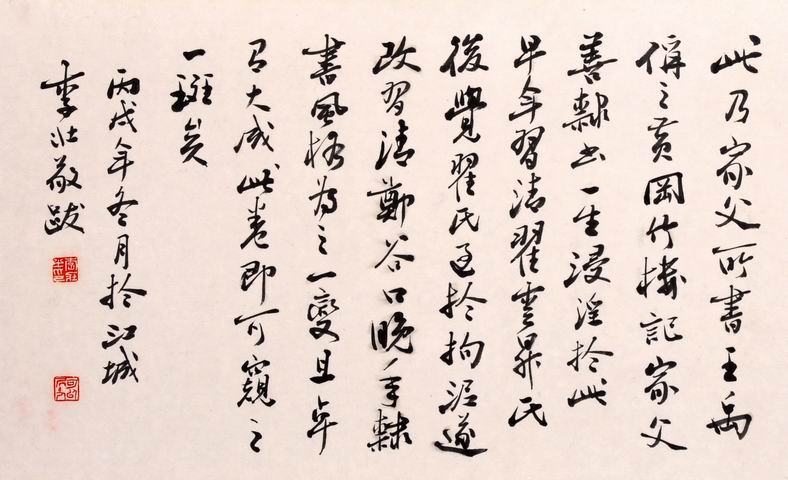 此乃家父所書王禹
偁之黃岡竹樓記家父
善隸書一生浸淫於此
早年習清翟雲昇氏
後覺翟氏過於拘泥遂
改習清鄭谷口晚年隸
書風格為之一變且卓
有大成此卷即可窺之
一斑矣
丙戌年冬月於江城
李壯敬跋